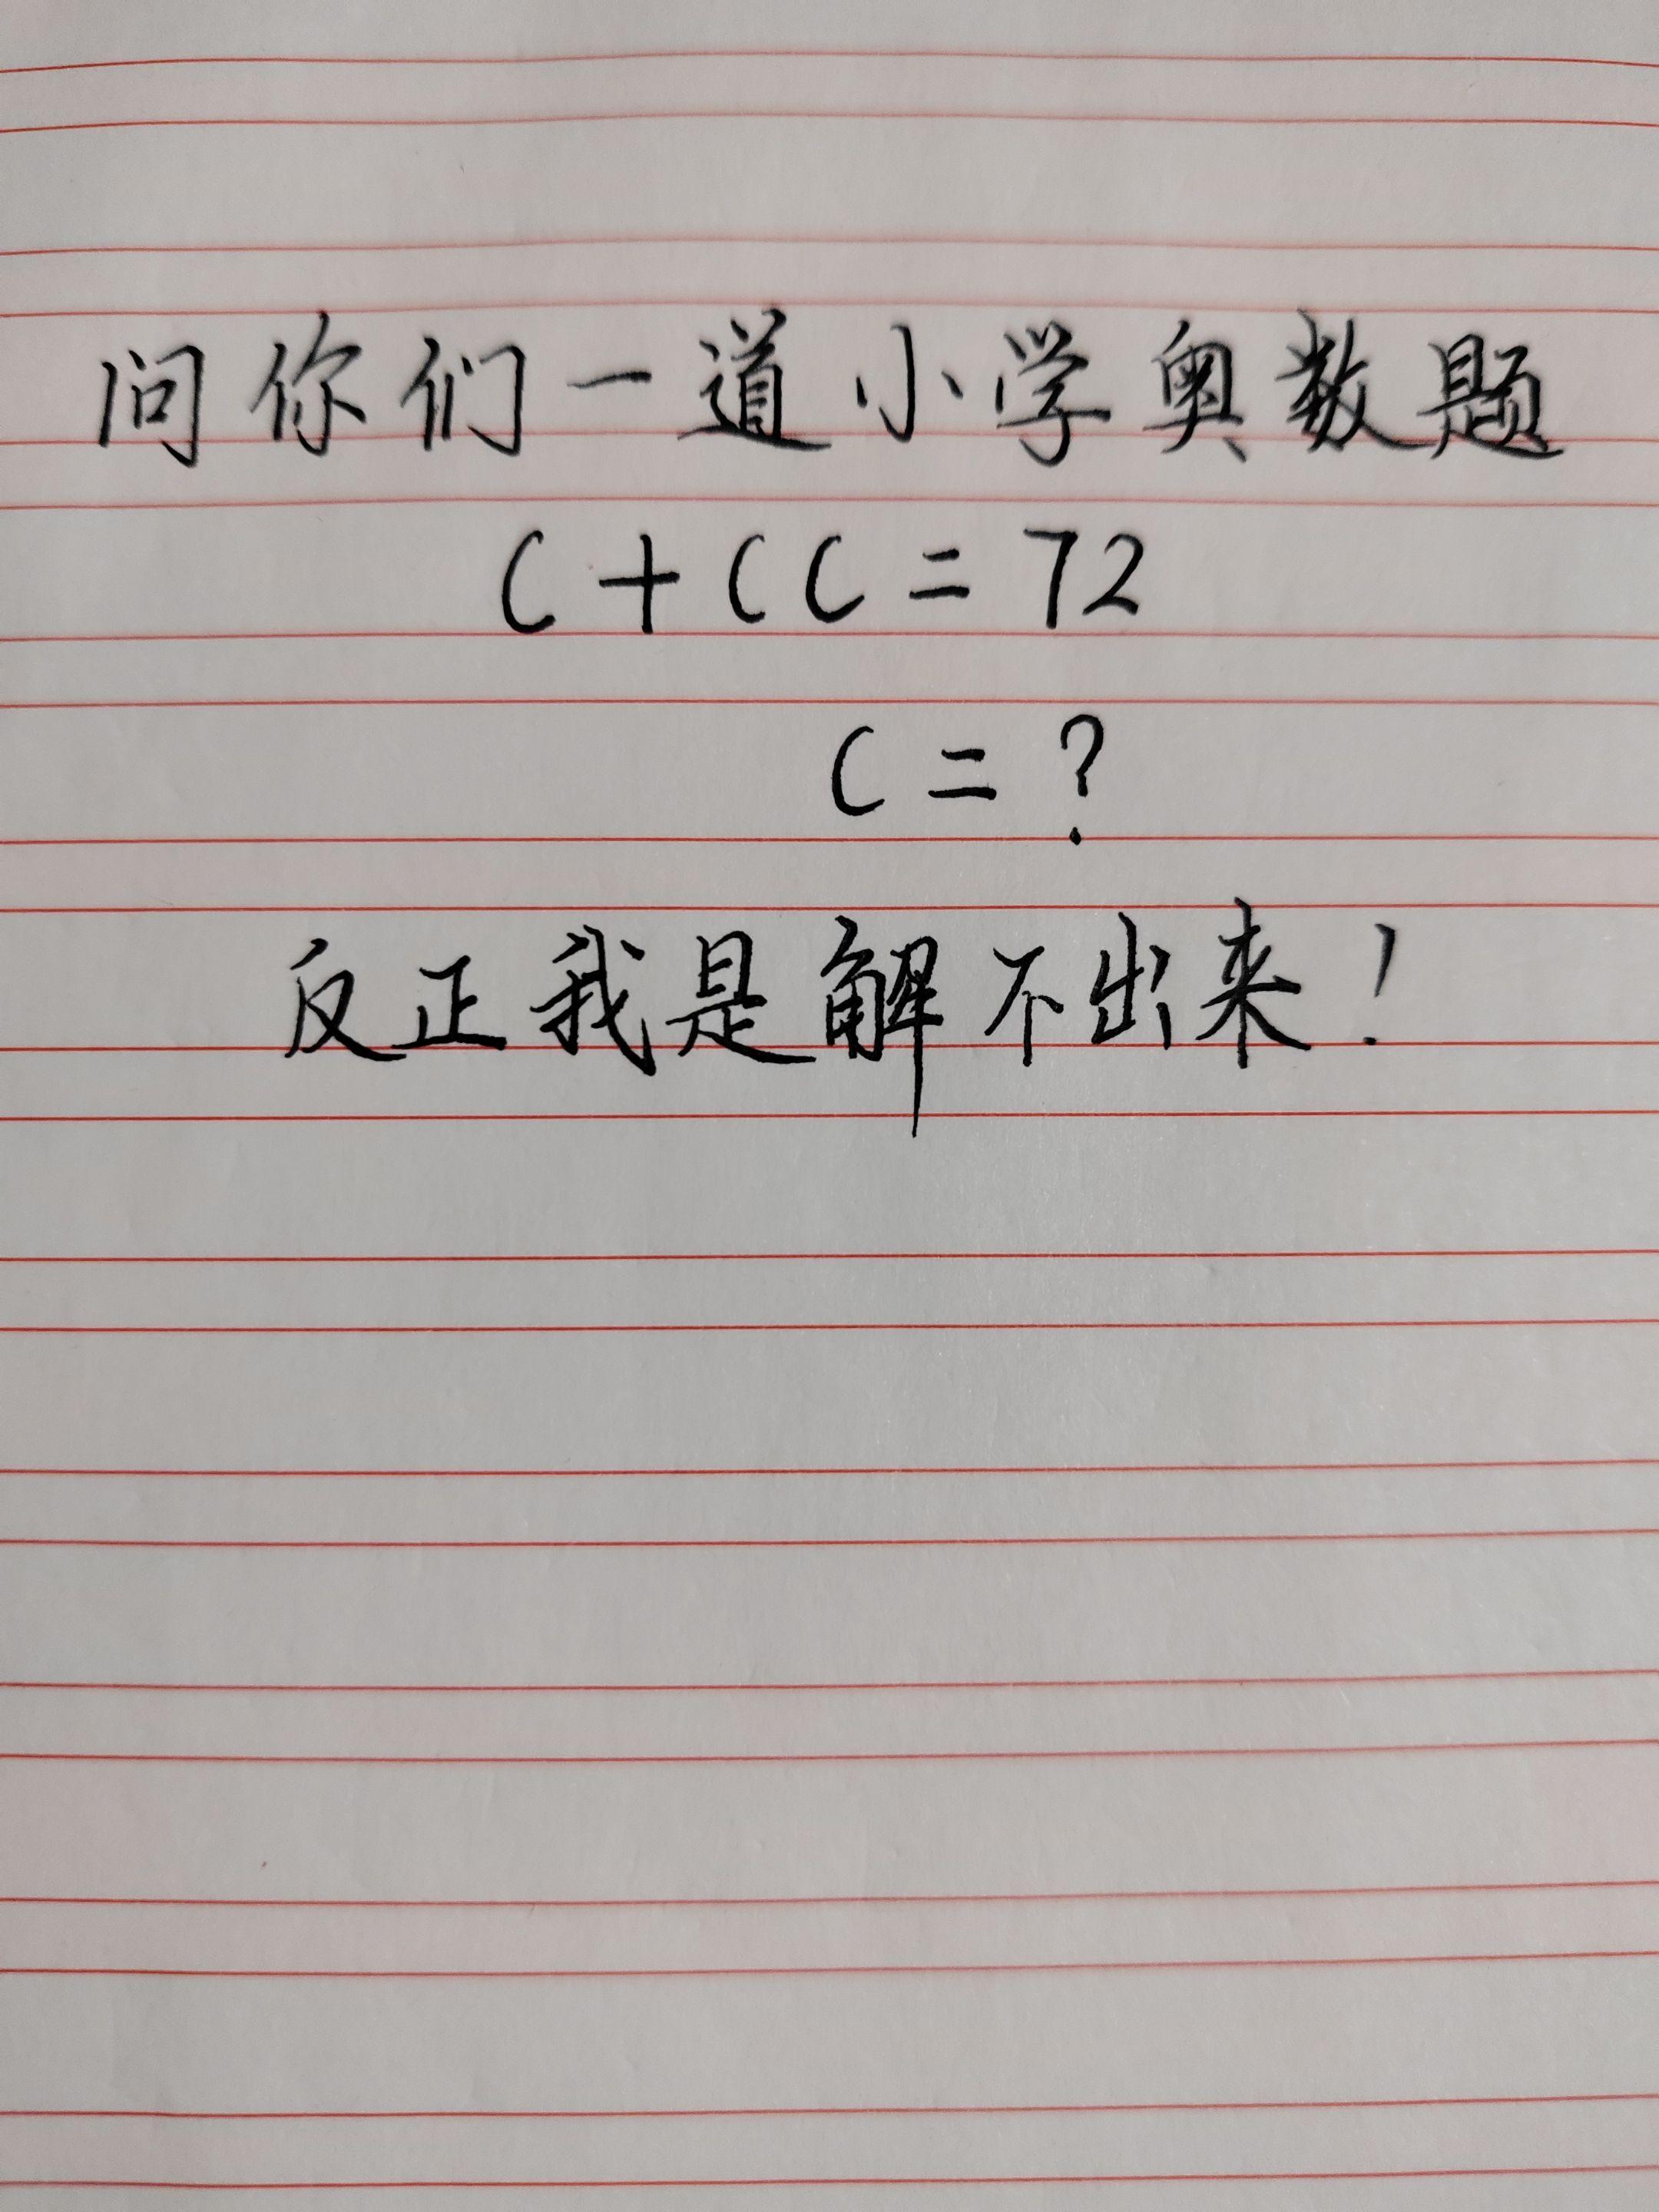 问你们一道小学奥数题
C+CC=72
C=?
反正我是解不出来!